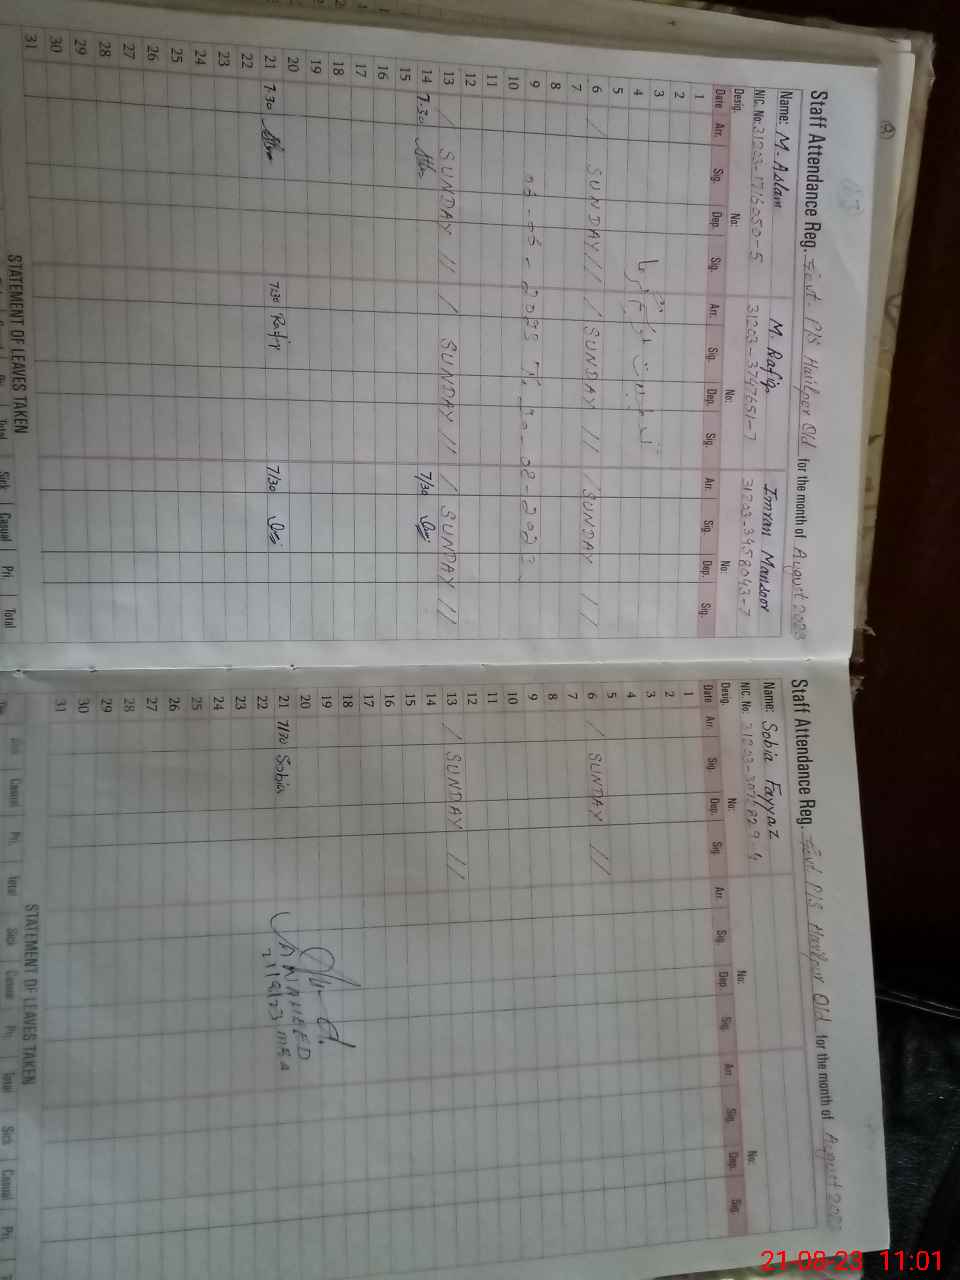 Staff Attendance Reg. Govt. P/S Haripur Old for the month of August 2023
Name: M. Aslam M. Rafiq Imran Mansoor
NIC. No: 31203-1716050-5 31203-3747651-7 31203-3458043-7
Desig. No: No: No:
Date Arr. Sig. Dep. Sig. Arr. Sig. Dep. Sig. Arr. Sig. Dep. Sig.
1
2
3
4
5
6 / SUNDAY // / SUNDAY // / SUNDAY //
7
8
9
10
11
12
13 / SUNDAY // / SUNDAY // / SUNDAY //
14 7.30 7/30
15
16
17
18
19
20
21 7.30 7:30 Rafiq 7/30
22
23
24
25
26
27
28
29
30
31
STATEMENT OF LEAVES TAKEN
Total Sick Casual Pri. Total
Staff Attendance Reg. Govt P/S Haripur Old for the month of August 2023
Name: Sobia Fayyaz
NIC. No:
Desig. No: No: No:
Date Arr. Sig. Dep. Sig. Arr. Sig. Dep. Sig. Arr. Sig. Dep. Sig.
1
2
3
4
5
6 / SUNDAY //
7
8
9
10
11
12
13 / SUNDAY //
14
15
16
17
18
19
20
21 7/30 Sobia
22
23
24
25
26
27
28
29
30
31
STATEMENT OF LEAVES TAKEN
Casual Pri. Total Sick Casual Pri. Total Sick Casual Pri.
21-08-23 11:01